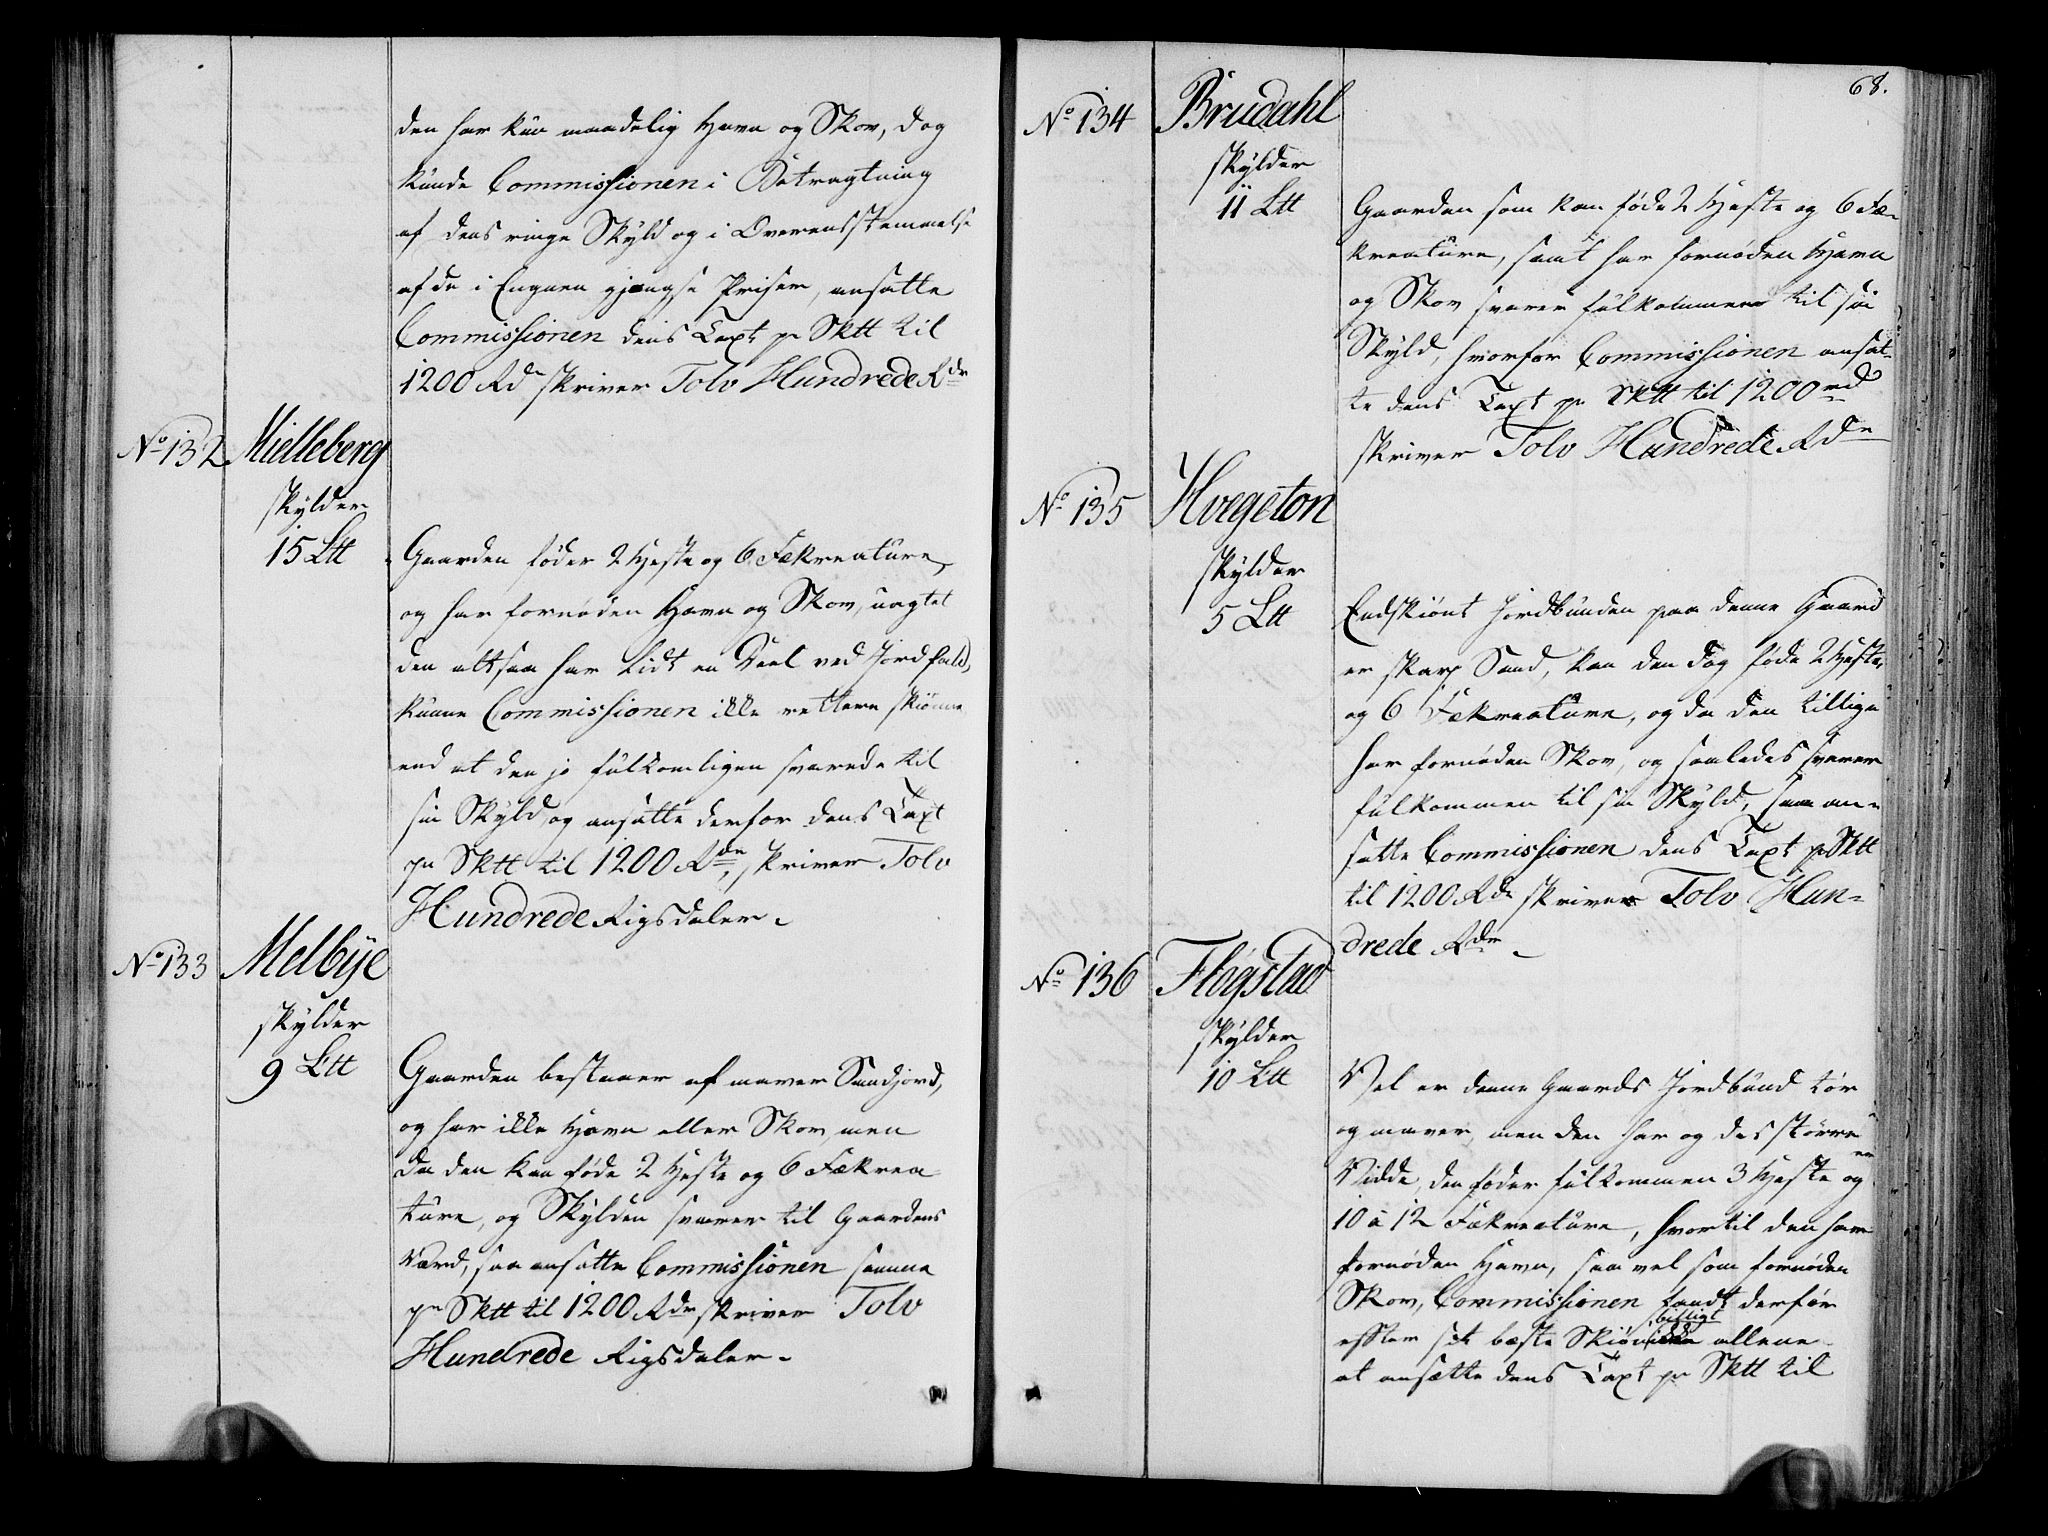 den har kun maadelig Havn og Skov, dog
kunde Commissionen i Betragtning
af dens ringe Skyld og i Overensstemmelse
af de i Egnen gjængse Priser, ansatte
Commissionen dens Taxt pr Sktt til
1200 Rdr skriver Tolv Hundrede Rdr
No 132 Mielleberg
skylder
15 Ltt
Gaarden føder 2 Heste og 6 Fækreature,
og har fornøden Havn og Skov, uagtet
den altsaa har lidt en Deel ved Jordfald,
kunne Commissionen ikke rettere skiønne
end at den jo fulkomligen svarede til
sin Skyld, og ansatte derfor dens Taxt
pr Sktt til 1200 Rdr, skriver Tolv
Hundrede Rigsdaler.
No 133 Melbÿe
skylder
9 Ltt
Gaarden bestaaer af maver Sandjord,
og har ikke Havn eller Skov, men
da den kan føde 2 Heste og 6 Fækrea-
ture, og Skylden svarer til Gaardens
Værd, saa ansatte Commissionen samme
pr Sktt til 1200 Rdr skriver Tolv
Hundrede Rigsdaler.
68.
No 134 Brudahl
skylder
11 Ltt
Gaarden som kan føde 2 Heste og 6 Fæ-
kreature, samt har fornøden Havn
og Skov svarer fulkommen til sin
Skyld, hvorfor Commissionen ansat-
te dens Taxt pr Sktt til 1200 rd
skriver Tolv Hundrede Rdr
No 135 Hvegeton
skylder
5 Ltt
Endskiønt Jordbunden paa denne Gaard
er skarp Sand, kan den dog føde 2 Heste,
og 6 Fækreature, og da den tillige
har fornøden Skov, og saaledes svarer
fulkommen til sin Skyld, saa an-
satte Commissionen dens Taxt pr Sktt
til 1200 Rdr skriver Tolv Hun-
drede Rdr
No 136 Flogstad
skylder
10 Ltt
Vel er denne Gaards Jordbund tør
og maver, men den har og des større
Vidde, den føder fulkommen 3 Heste og
10 à 12 Fækreature, hvortil den har
fornøden Havn, saa vel som fornøden
Skov, Commissionen fandt derfor
effter sit beste Skiøn billigt allene
at ansætte dens Taxt pr Sktt til